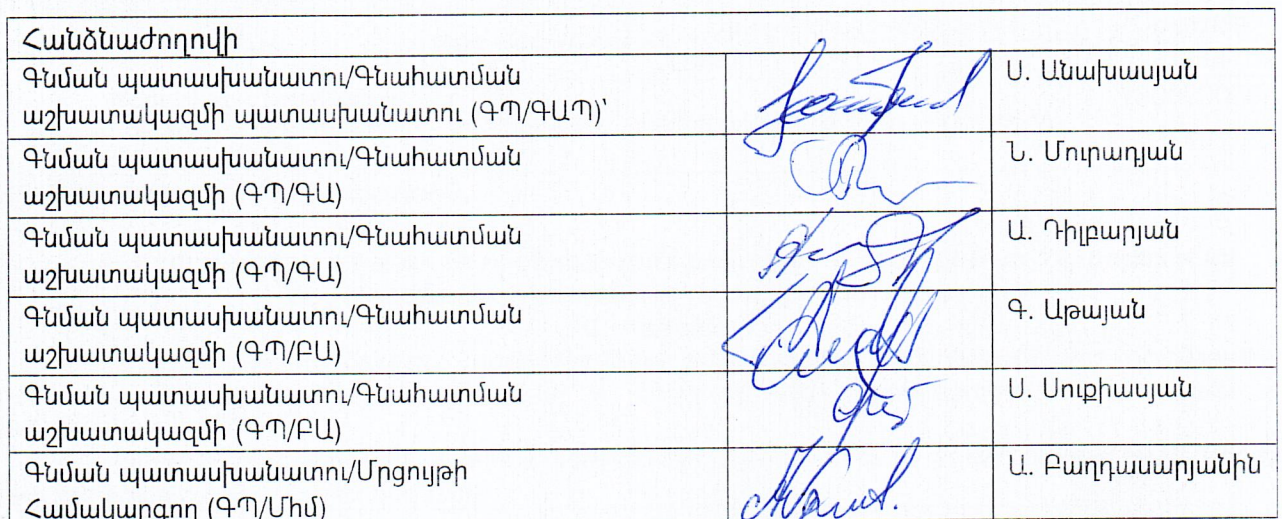 Հանձնաժողովի
Գնման պատասխանատու/Գնահատման
աշխատակազմի պատասխանատու (ԳՊ/ԳԱՊ)՝
Ս. Անախասյան
Գնման պատասխանատու/Գնահատման
աշխատակազմի (ԳՊ/ԳԱ)
Ն. Մուրադյան
Գնման պատասխանատու/Գնահատման
աշխատակազմի (ԳՊ/ԳԱ)
Ա. Դիլբարյան
Գնման պատասխանատու/Գնահատման
աշխատակազմի (ԳՊ/ԲԱ)
Գ. Աթայան
Գնման պատասխանատու/Գնահատման
աշխատակազմի (ԳՊ/ԲԱ)
Ս. Սուքիասյան
Գնման պատասխանատու/Մրցույթի
Համակարգող (ԳՊ/Միմ)
Ա. Բաղդասարյանին